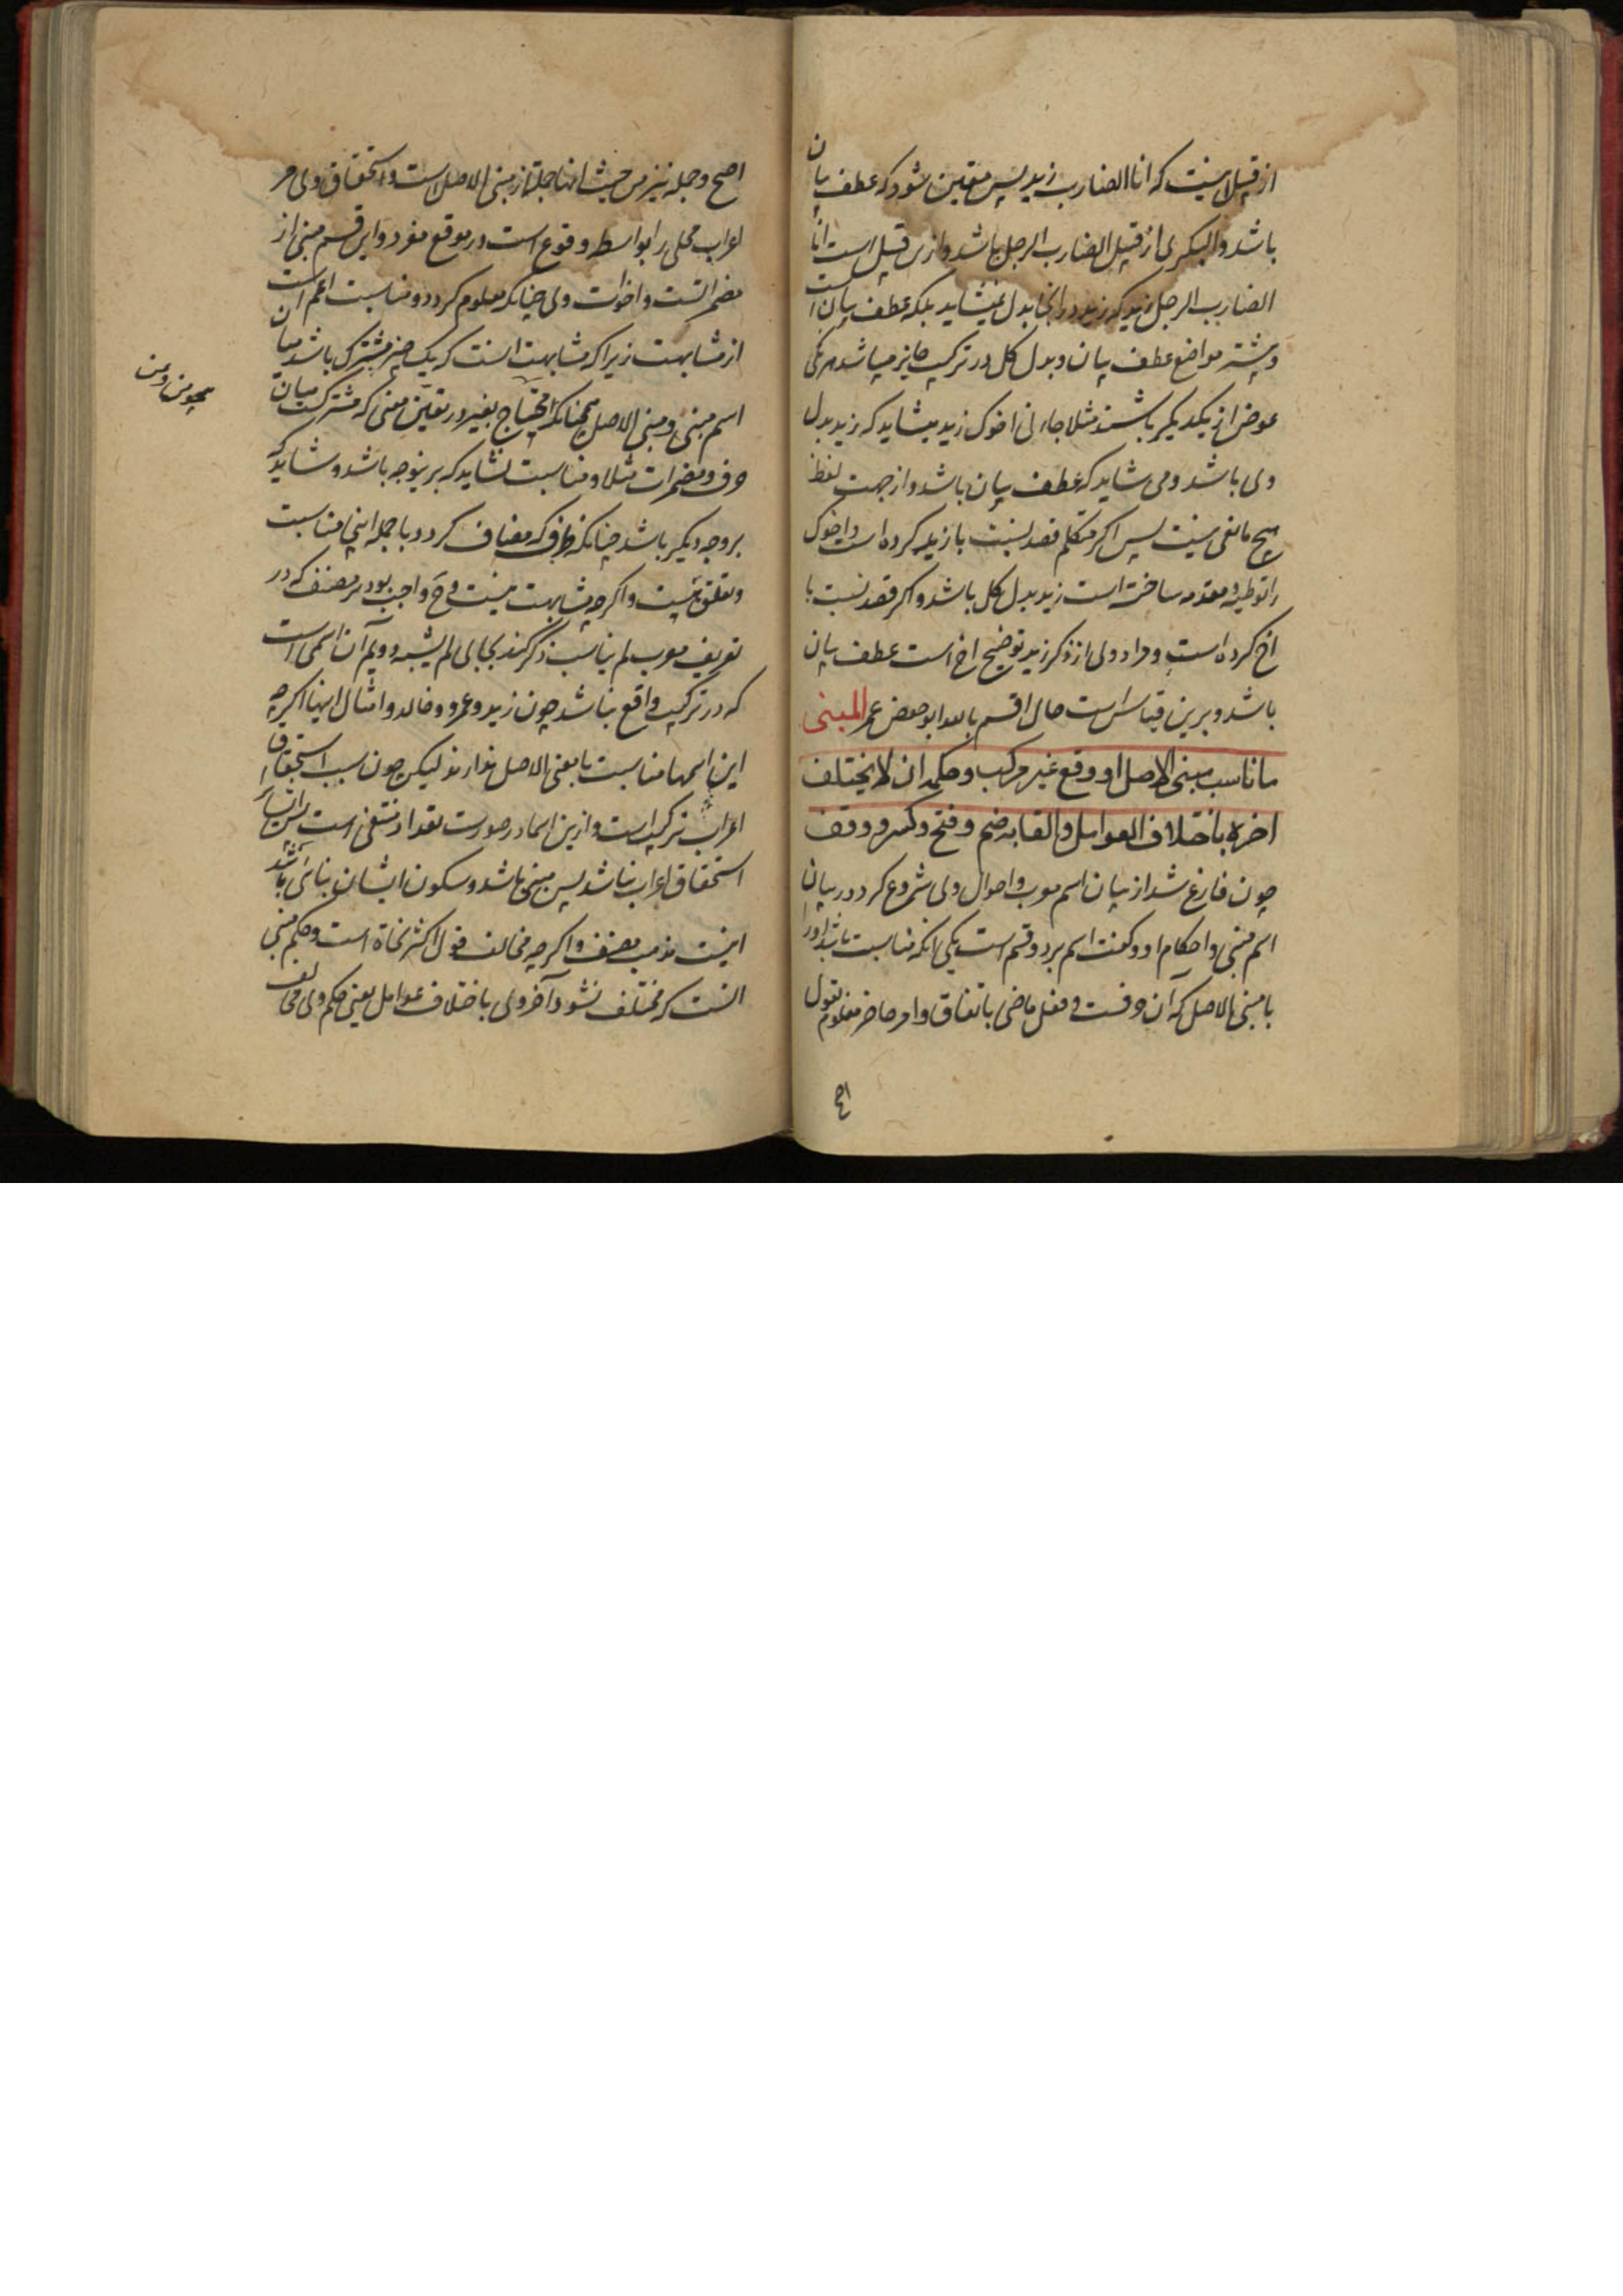 از قبیل اینست که انا الضارب زید پس متعین شود که عطف بیان
باشد والبکری از قبیل الضارب الرجل باشد وازین قبیل است انا
الضارب الرجل زید که زید در انجا بدل نمیشاید بلکه عطف بیان است
وبیشتر مواضع عطف بیان وبدل کل در ترکیب جایز میباشد هر یکی
عوض از یکدیگر باشند مثلا جاءنی اخوک زید میشاید که زید بدل
وی باشد ومی شاید که عطف بیان باشد واز جهت لفظ
هیچ مانعی نیست پس اگر متکلم قصد نسبت با زید کرده است واخوک
را توطیه ومقدمه ساخته است زید بدل کل باشد واگر قصد نسبت با
اخ کرده است ومراد وی از ذکر زید توضیح اخ است عطف بیان
باشد وبرین قیاس است حال اقسم بالله ابو حفص عمر المبنی
ما ناسب مبنی الاصل او وقع غیر مرکب وحکمه ان لا یختلف
اخره باختلاف العوامل والقابه ضم وفتح وکسر ووقف
چون فارغ شد از بیان اسم معرب واحوال وی شروع کرد در بیان
اسم مبنی واحکام او وگفت اسم بر دو قسم است یکی انکه مناسبت باشد او را
با مبنی الاصل که آن حرفست وفعل ماضی باتفاق وامر حاضر معلوم بقول
اصح
اصح وجمله نیز من حیث انها جملة از مبنی الاصل است واستحقاق وی مر
اعراب محلی را بواسطه وقوع است در موقع مفرد واین قسم مبنی از
مضمراتست واخوات وی چنانکه معلوم گردد ومناسبت اعم است
از مشابهت زیرا که مشابهت انست که یک چیز مشترک باشد میان
اسم مبنی ومبنی الاصل همچنانکه احتیاج بغیر در تعین معنی که مشترکست میان
حرف ومضمرات مثلا ومناسبت شاید که برینوجه باشد وشاید که
بر وجه دیگر باشد چنانکه ظرف که مضاف گردد با جمله اینجا مناسبت
وتعلق نیست واگرچه مشابهت نیست وح واجب بود بر مصنف که در
تعریف معرب لم یناسب ذکر کند بجای لم یشبه ودویم آن اسمی است
که در ترکیب واقع نباشد چون زید وعمرو وخالد وامثال اینها اگرچه
این اسمها مناسبت با مبنی الاصل ندارند لیکن چون سبب استحقاق
اعراب ترکیب است وازین اسما در صورت تعداد منتفی است پس ایشانرا
استحقاق اعراب نباشد پس مبنی باشد وسکون ایشان بنائی باشد
اینست مذهب مصنف واگرچه مخالف قول اکثر نحاة است وحکم مبنی
انست که مختلف نشود آخر وی باختلاف عوامل یعنی حکم وی مخالف